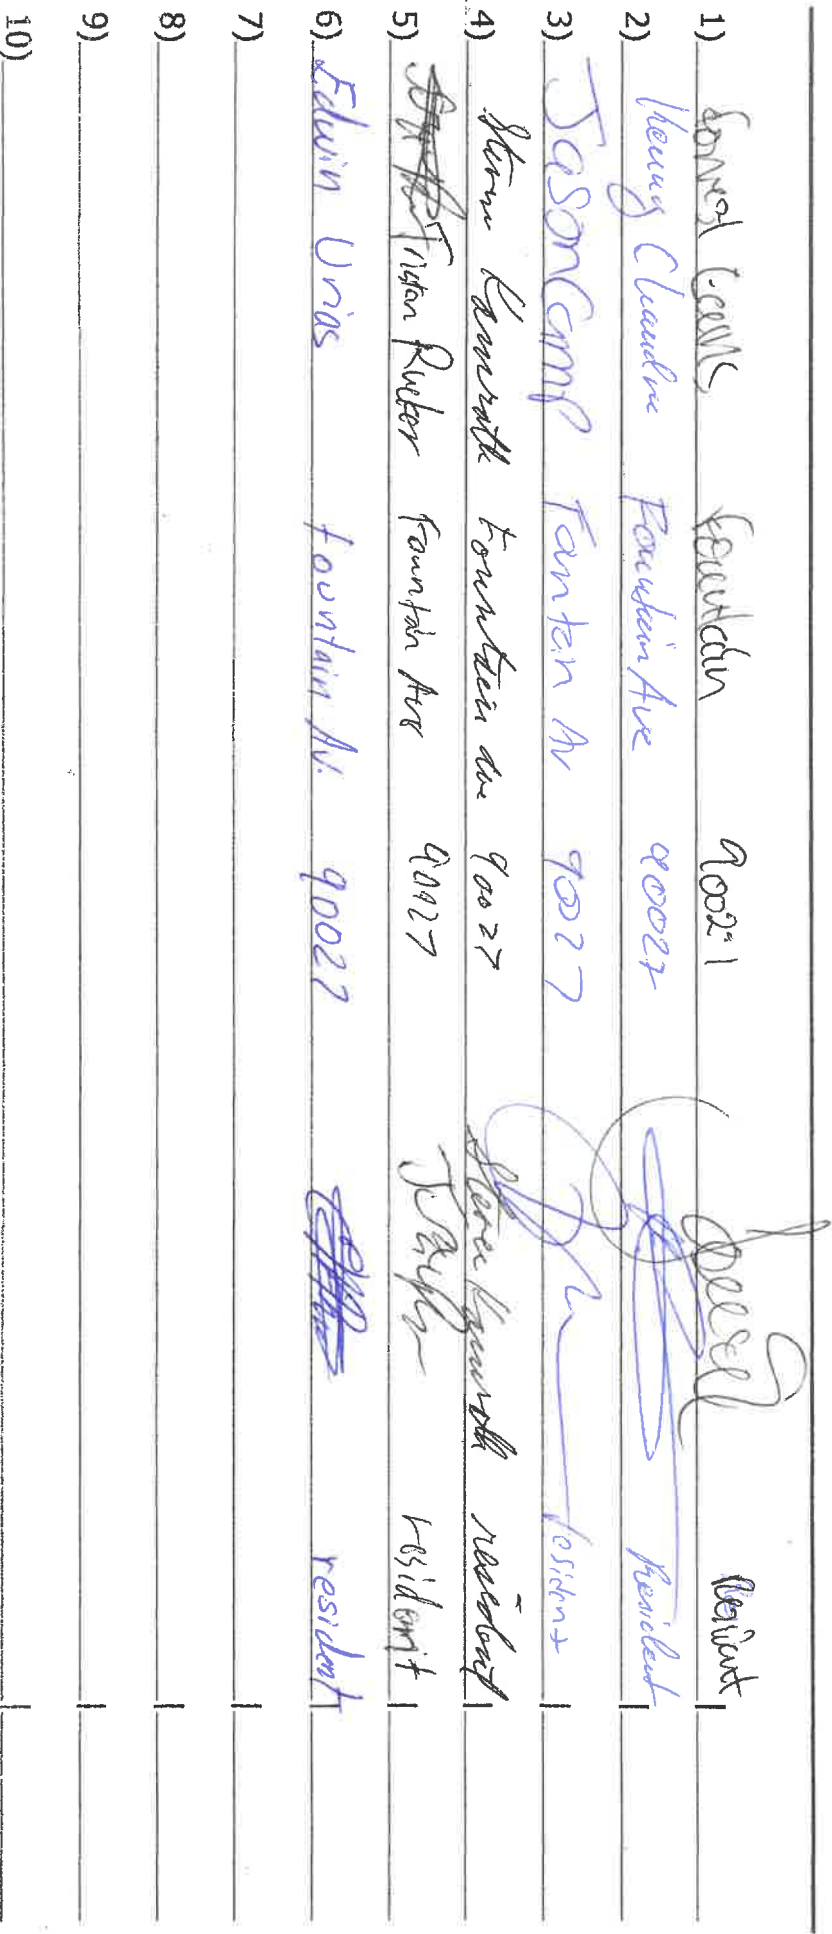 1) Fountain 90027 Resident
2) Chandra Fountain Ave 90027 Resident
3) Jason Camp Fantain Av 90027 resident
4) Steve Kamrath Fountain ave 90027 Steve Kamrath resident
5) Tristan Rucker Fountain Ave 90027 resident
6) Edwin Urias fountain Av. 90027 resident
7)
8)
9)
10)